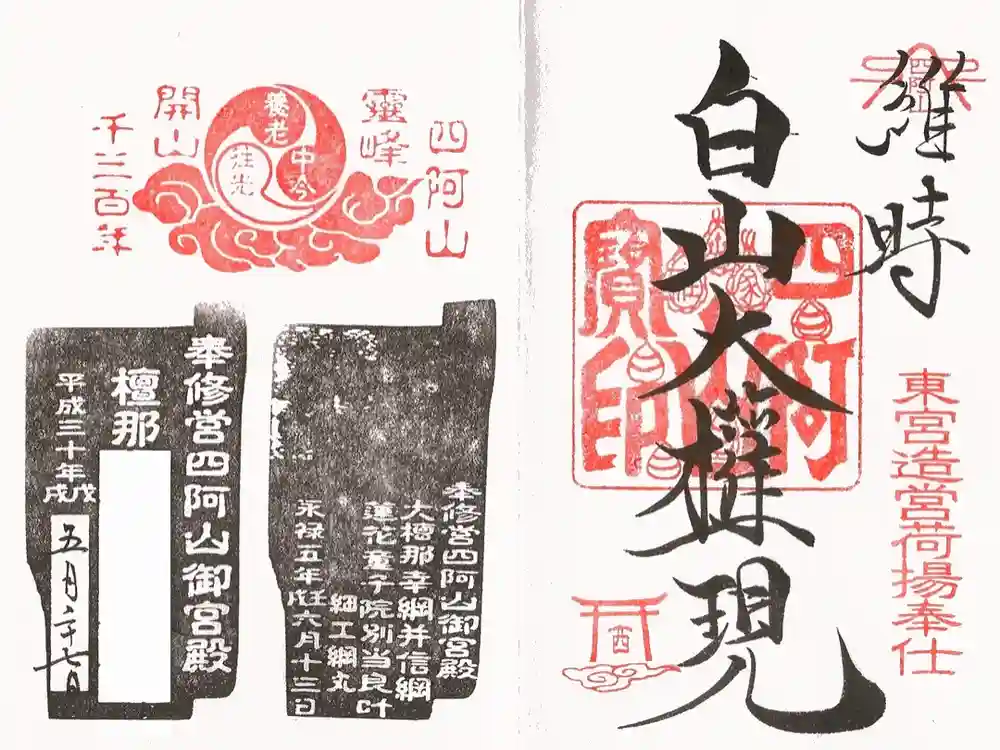 維時
東宮造営荷揚奉仕
白山大權現
四阿山
寶印
西
四阿山
靈峰
養老
中今
開山
千三百年
奉修営四阿山御宮殿
大檀那幸綱并信綱
蓮花童子院別当良叶
細工綱丸
永禄五年壬戌六月十三日
奉修営四阿山御宮殿
檀那
平成三十年戊戌
五月二十七日